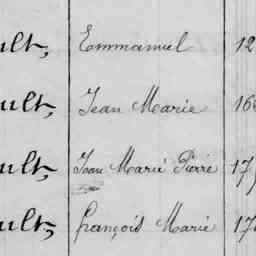 ult, Emmanuel 12
ult, Jean Marie 16
ult, Jean Marie Pierre 17
ult, François Marie 17